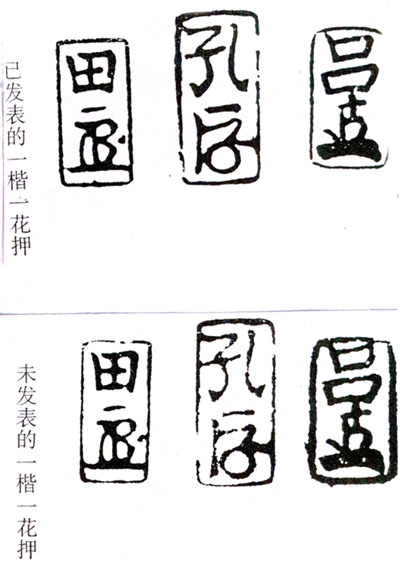 已发表的一楷一花押
田
孔
吕
未发表的一楷一花押
田
孔
吕